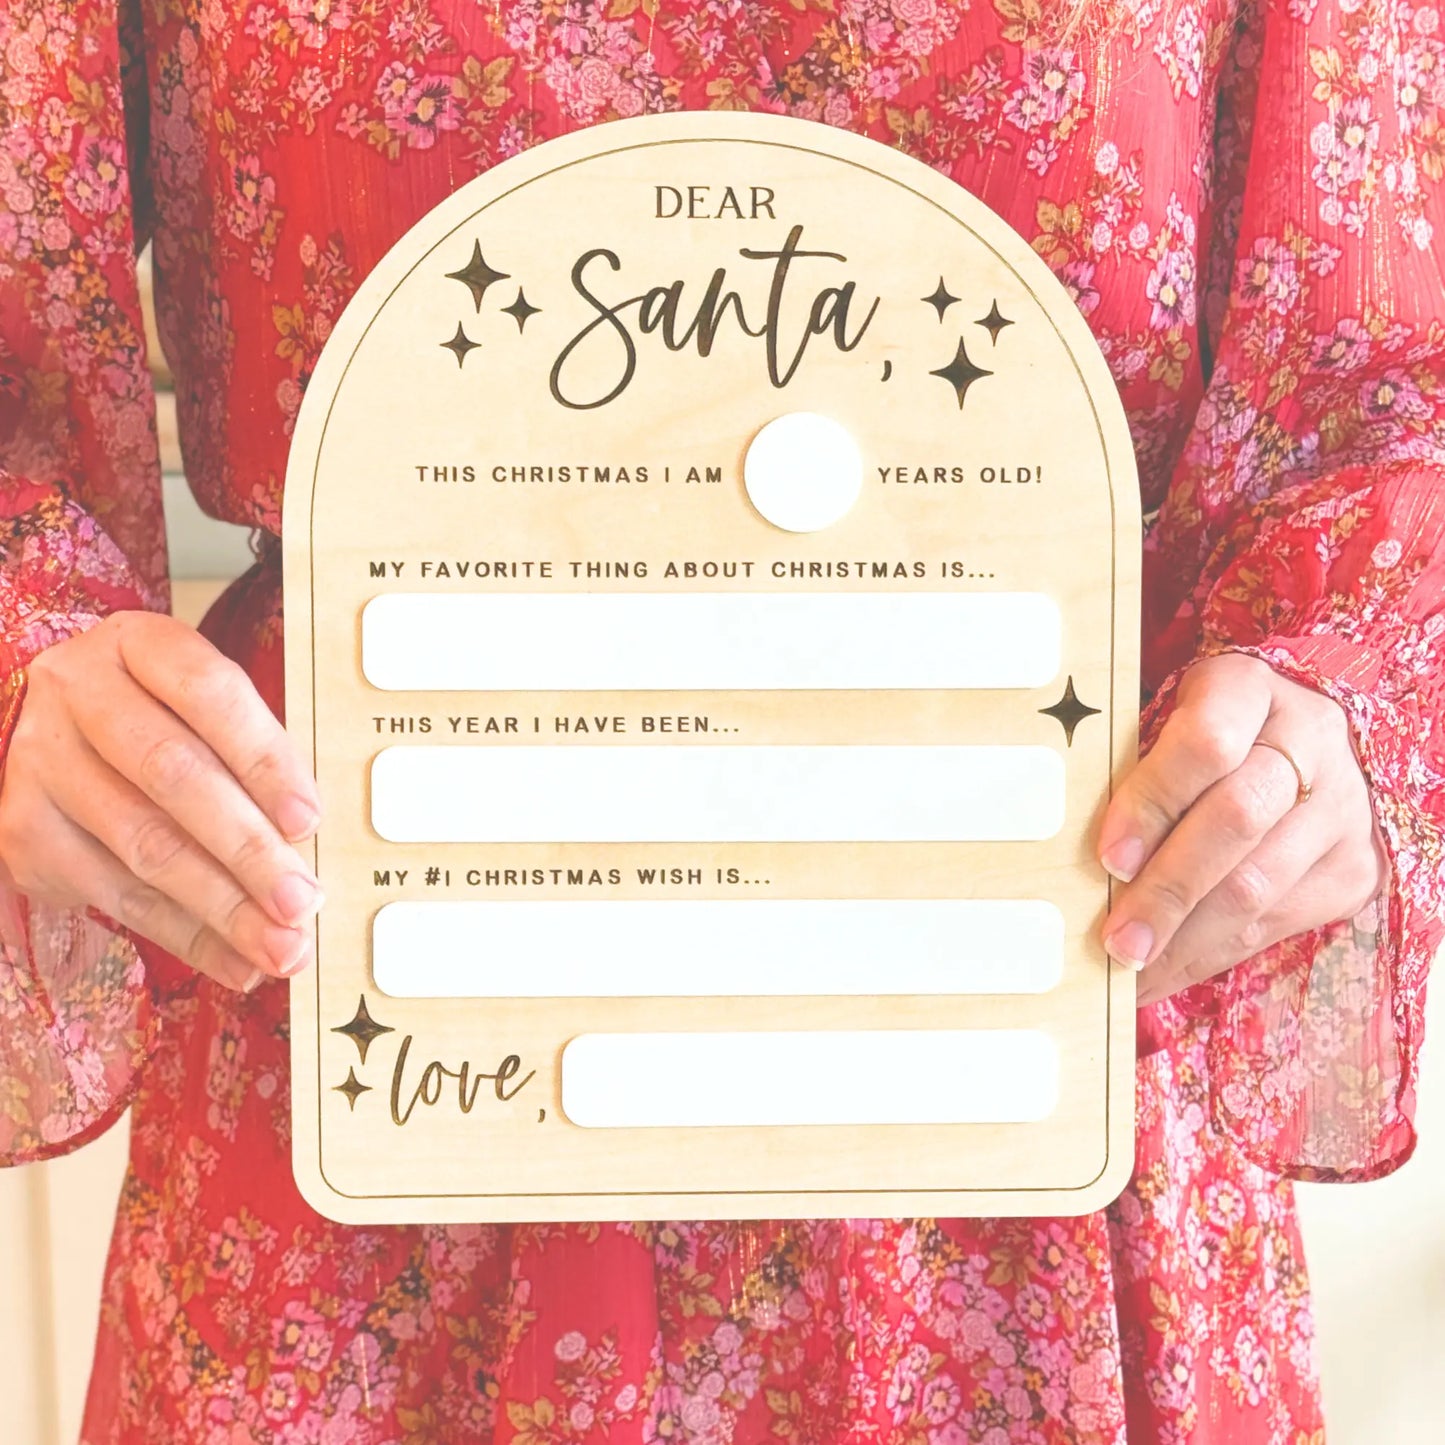 DEAR
Santa,
THIS CHRISTMAS I AM YEARS OLD!
MY FAVORITE THING ABOUT CHRISTMAS IS...
THIS YEAR I HAVE BEEN...
MY #1 CHRISTMAS WISH IS...
love,